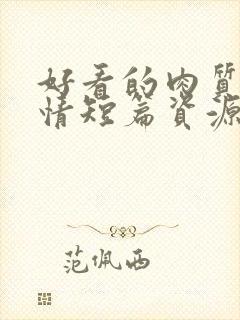 好看的肉質
情短篇資源
范佩西